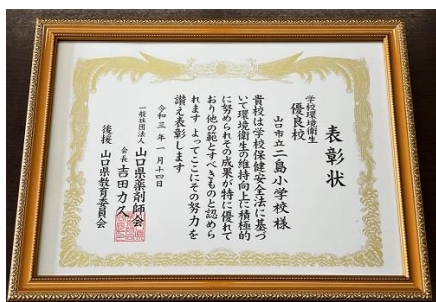 表彰状
学校環境衛生
優良校
山口市立二島小学校様
貴校は学校保健安全法に基づ
いて環境衛生の維持向上に積極的
に努められその成果が特に優れて
おり他の範とすべきものと認めら
れます よってここにその努力を
讃え表彰します
令和三年一月十四日
一般社団法人 山口県薬剤師会
会長 吉田力久
後援 山口県教育委員会